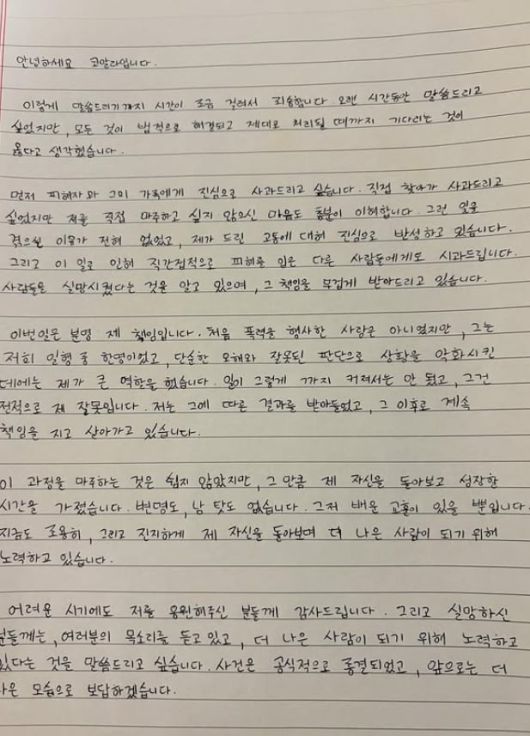 안녕하세요 코알라입니다.
이렇게 말씀드리기까지 시간이 조금 걸려서 죄송합니다. 오랜 시간동안 말씀드리고
싶었지만, 모든 것이 법적으로 해결되고 제대로 처리될 때까지 기다리는 것이
옳다고 생각했습니다.
먼저 피해자와 그의 가족에게 진심으로 사과드리고 싶습니다. 직접 찾아가 사과드리고
싶었지만 저를 직접 마주하고 싶지 않으신 마음도 충분이 이해합니다. 그런 일을
겪으실 이유가 전혀 없었고, 제가 드린 고통에 대해 진심으로 반성하고 있습니다.
그리고 이 일로 인해 직간접적으로 피해를 입은 다른 사람들에게도 사과드립니다.
사람들을 실망시켰다는 것을 알고 있으며, 그 책임을 무겁게 받아드리고 있습니다.
이번일은 분명 제 책임입니다. 처음 폭력을 행사한 사람은 아니었지만, 그는
저희 일행 중 한명이었고, 단순한 오해와 잘못된 판단으로 상황을 악화시킨
데에는 제가 큰 역할을 했습니다. 일이 그렇게 까지 커져서는 안 됐고, 그건
전적으로 제 잘못입니다. 저는 그에 따른 결과를 받아들였고, 그 이후로 계속
책임을 지고 살아가고 있습니다.
이 과정을 마주하는 것은 쉽지 않았지만, 그 만큼 제 자신을 돌아보고 성장할
시간을 가졌습니다. 변명도, 남 탓도 없습니다. 그저 배운 교훈이 있을 뿐입니다.
지금도 조용히, 그리고 진지하게 제 자신을 돌아보며 더 나은 사람이 되기 위해
노력하고 있습니다.
어려운 시기에도 저를 응원해주신 분들께 감사드립니다. 그리고 실망하신
분들께는, 여러분의 목소리를 듣고 있고, 더 나은 사람이 되기 위해 노력하고
있다는 것을 말씀드리고 싶습니다. 사건은 공식적으로 종결되었고, 앞으로는 더
나은 모습으로 보답하겠습니다.